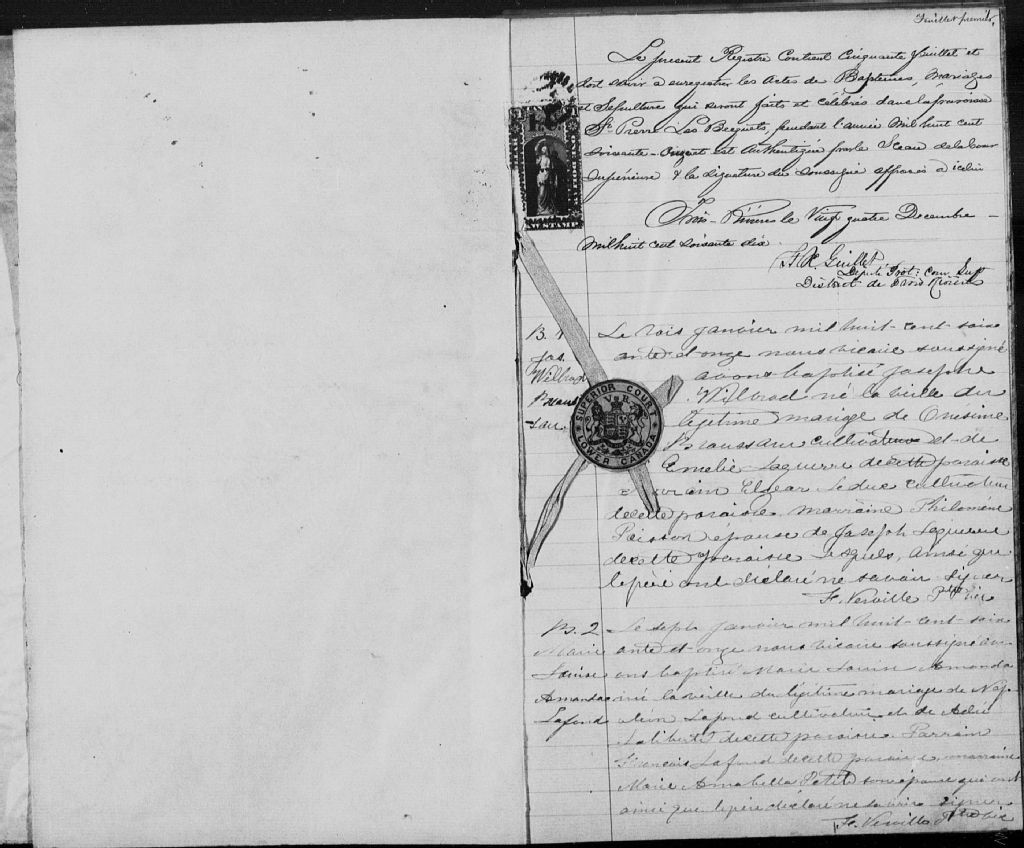 Feuillet premier,
Le present Registre Contient Cinquante feuillet et
doit servir à enregistrer les Actes de Baptêmes, Mariages
et Sépulture qui seront faits et célébrés dans la paroisse
St Pierre Les Becquets, pendant l'année Mil huit cent
Soixante-Onze et est Authentiqué par le Sceau de la Cour
Supérieure & la signature du Soussigné apposés à icelui
Trois-Rivières le Vingt quatre Decembre
Mil huit cent soixante dix
F. R. Guillet
Député Prot: Cour Supr
District de Trois Rivières
B. 1
Jos.
Wilbrod
Brous
sau.
SUPERIOR COURT
V R
LOWER CANADA
Le trois janvier mil huit-cent-soix
ante-et-onze nous vicaire soussigné
avons baptisé Joseph
Wilbrod né la veille du
légitime mariage de Onesime
Broussau cultivateur et de
Emelie Laguerre de cette paroisse
Elzear Leduc cultivateur
de cette paroisse, marraine Philomène
Poisson épouse de Joseph Laguerre
de cette paroisse lesquels, ainsi que
le père ont déclaré ne savoir signer
F. Verville Ptre Vic
B. 2
Marie
Louise
Amanda
Lafond
Le sept janvier mil huit-cent-soix
ante-et-onze nous vicaire soussigné av
ons baptisé Marie Louise Amanda
née la veille du légitime mariage de Nap
oléon Lafond cultivateur et de Adée
Laliberté de cette paroisse. Parrain
François Lafond de cette paroisse, marraine
Marie Annabella Petit son épouse qui ont
ainsi que le père déclaré ne savoir signer
F. Verville Ptre Vic